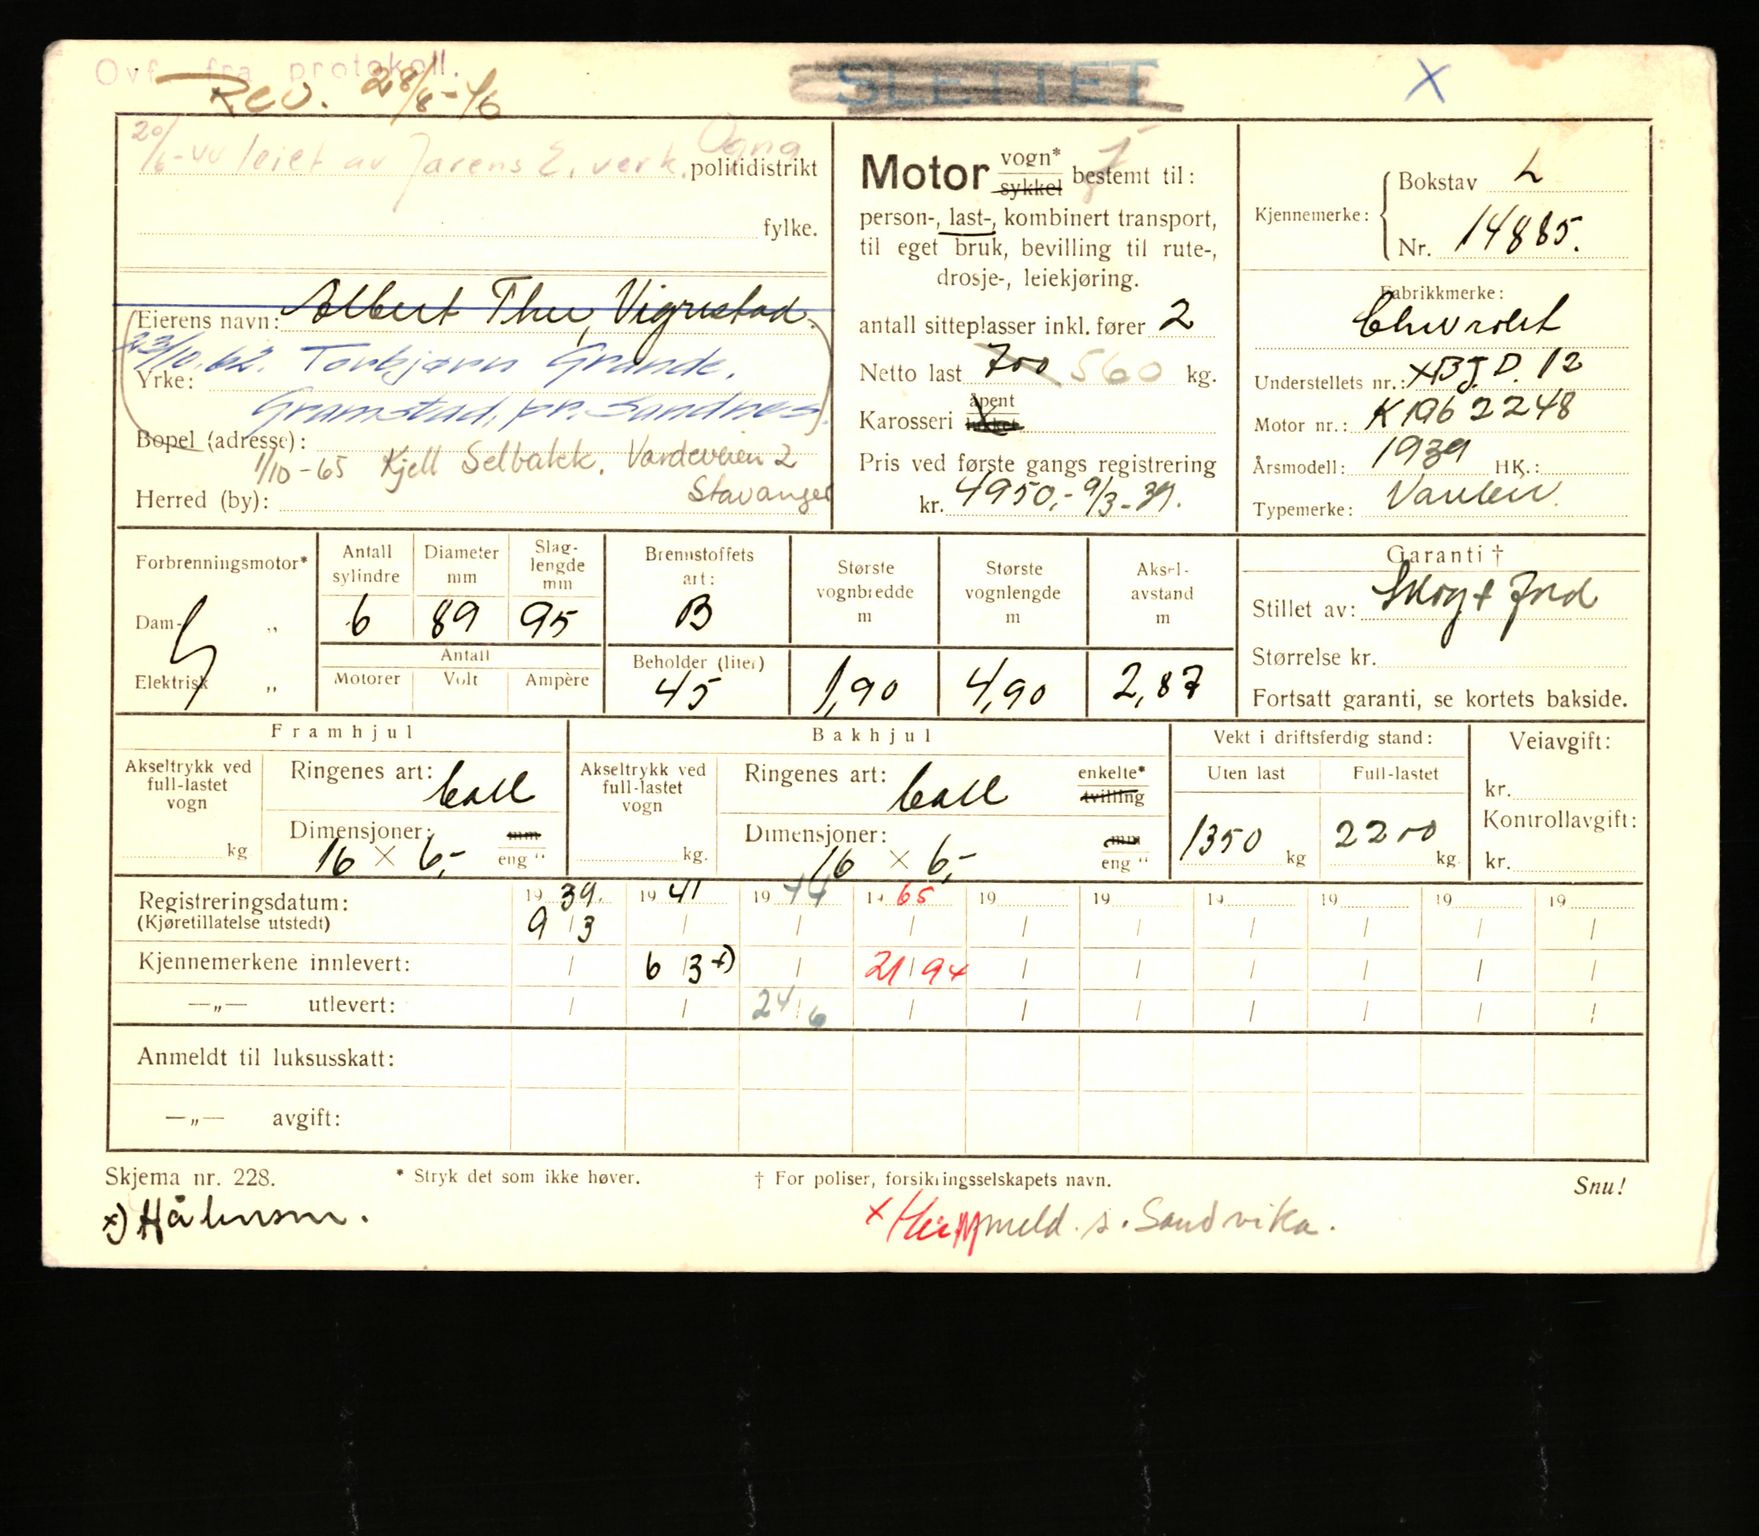 Ovf. fra protokoll.
Rev. 28/8-46
SLETTET
X
20/6-44 leiet av Jærens E. verk.
Ogna politidistrikt
fylke.
Eierens navn: Albert Thu, Vigrestad.
23/10.62. Torbjørn Grande.
Yrke:
Gramstad, pr. Sandnes.
Bopel (adresse):
1/10-65 Kjell Selbakk. Vardeveien 2
Stavanger
Herred (by):
Motor vogn* sykkel bestemt til:
person-, last-, kombinert transport,
til eget bruk, bevilling til rute-,
drosje-, leiekjøring.
antall sitteplasser inkl. fører 2
Netto last 700 560 kg.
Karosseri åpent lukket
Pris ved første gangs registrering
kr. 4950,- 9/3-39.
Kjennemerke: Bokstav L
Nr. 14885.
Fabrikkmerke:
Chevrolet
Understellets nr.: XBJ.D. 12
Motor nr.: K1962248
Årsmodell: 1939 HK.:
Typemerke:
Forbrenningsmotor*
Dam- „
Elektrisk „
Antall sylindre 6
Diameter mm 89
Slag-lengde mm 95
Antall
Motorer Volt Ampère
Brennstoffets art: B
Beholder (liter) 45
Største vognbredde m 1,90
Største vognlengde m 4,90
Aksel-avstand m 2,87
Garanti †
Stillet av:
Størrelse kr.
Fortsatt garanti, se kortets bakside.
Framhjul
Akseltrykk ved full-lastet vogn
kg
Ringenes art:
Dimensjoner: mm
16 × 6,- eng "
Bakhjul
Akseltrykk ved full-lastet vogn
kg.
Ringenes art: enkelte* tvilling
Dimensjoner: mm
16 × 6,- eng "
Vekt i driftsferdig stand:
Uten last Full-lastet
1350 kg 2200 kg.
Veiavgift:
kr.
Kontrollavgift:
kr.
Registreringsdatum: 19 39. 19 41 19 44 19 65 19 19 19 19 19 19
(Kjøretillatelse utstedt) 9/3 / / / / / / / / /
Kjennemerkene innlevert: / 6/3 x) / 21/9 x / / / / / /
—„— utlevert: / / 24/6 / / / / / / /
Anmeldt til luksusskatt:
—„— avgift:
Skjema nr. 228.
* Stryk det som ikke høver.
† For poliser, forsikringsselskapets navn.
Snu!
x)
x s. Sandvika.